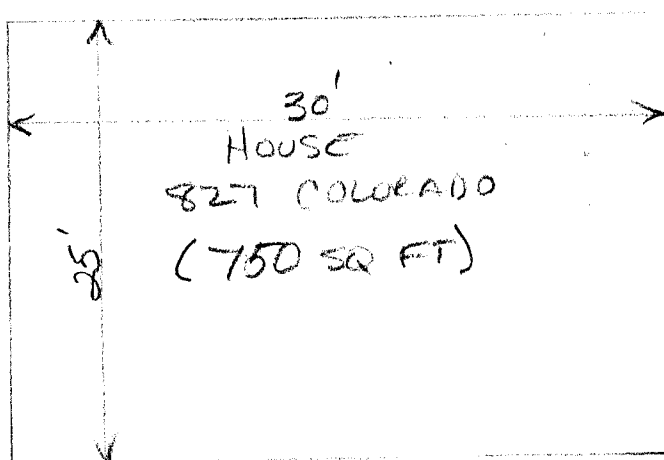 30'
HOUSE
827 COLORADO
(750 SQ FT)
25'